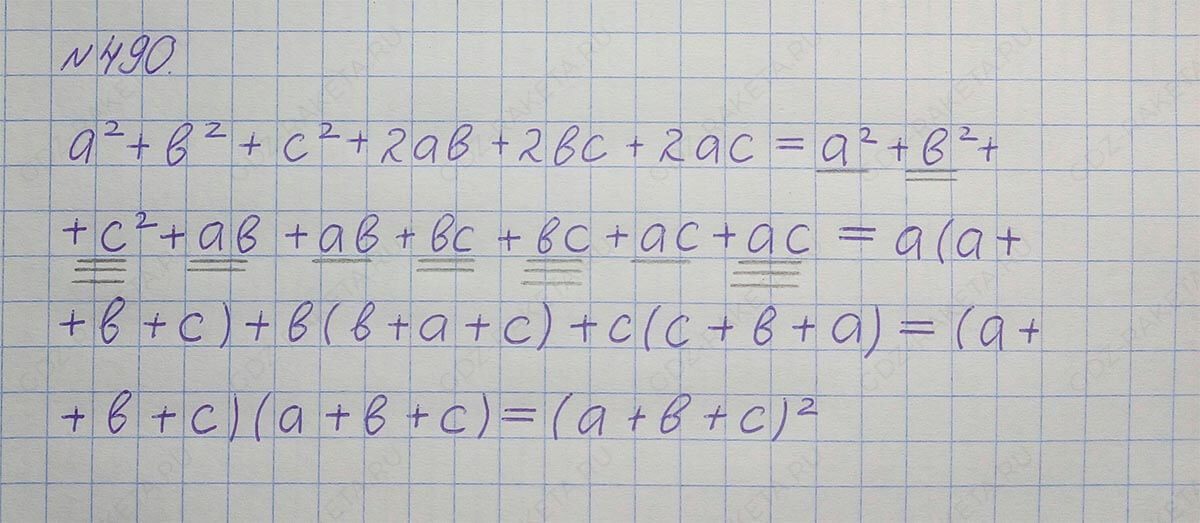 №490.
a² + в² + c² + 2aв + 2вc + 2ac = a² + в² +
+ c² + aв + aв + вc + вc + ac + ac = a(a +
+ в + c) + в(в + a + c) + c(c + в + a) = (a +
+ в + c)(a + в + c) = (a + в + c)²